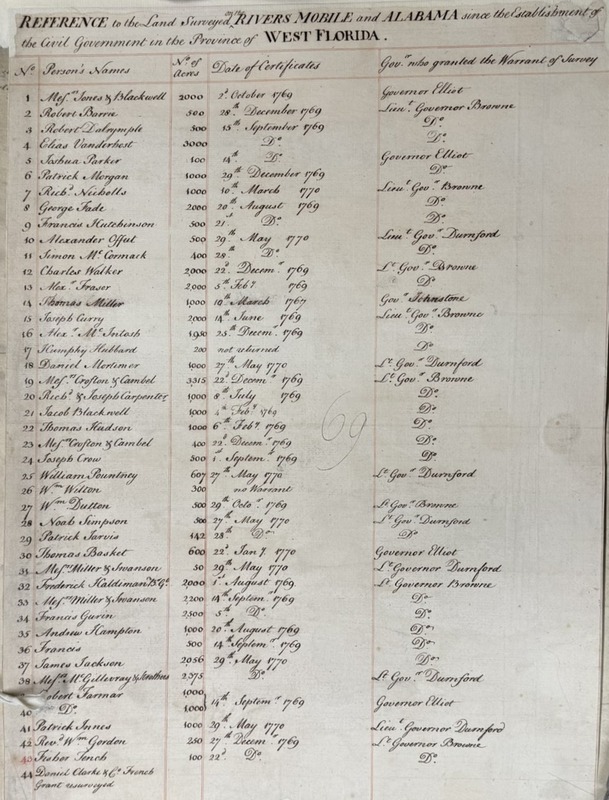 REFERENCE to the Land Surveyed on the RIVERS MOBILE and ALABAMA since the Establishment of
the Civil Government in the Province of WEST FLORIDA.
No. Person's Names No. of Acres Date of Certificates Govr. who granted the Warrant of Survey
1 Messrs. Jones & Blackwell 2000 2d. October 1769 Governor Elliot
2 Robert Barrie 500 28th. December 1769 Lieut. Governor Browne
3 Robert Dalrymple 500 15th. September 1769 Do.
4 Elias Vanderhost 3000 Do. Do.
5 Joshua Parker 100 14th. Do. Governor Elliot
6 Patrick Morgan 1000 29th. December 1769 Do.
7 Richd. Nicholls 1000 10th. March 1770 Lieut. Govr. Browne
8 George Fade 2000 20th. August 1769 Do.
9 Francis Hutchinson 500 21st. Do. Do.
10 Alexander Offut 500 29th. May 1770 Lieut. Govr. Durnford
11 Simon McCormack 400 28th. Do. Do.
12 Charles Walker 2000 22d. Decemr. 1769 Lt. Govr. Browne
13 Alexr. Fraser 2000 5th. Feby. 1769 Do.
14 Thomas Miller 1000 March 1767 Govr. Johnstone
15 Joseph Curry 2000 14th. June 1769 Lieut. Govr. Browne
16 Alexr. McIntosh 1950 25th. Decemr. 1769 Do.
17 Humphy Hubbard 200 not returned Do.
18 Daniel Mortimer 1000 27th. May 1770 Lt. Govr. Durnford
19 Messrs. Crofton & Cambel 3315 22d. Decemr. 1769 Lt. Govr. Browne
20 Richd. & Joseph Carpenter 1000 8th. July 1769 Do.
21 Jacob Blackwell 1000 4th. Feby. 1769 Do.
22 Thomas Hudson 1000 6th. Feby. 1769 Do.
23 Messrs. Crofton & Cambel 400 22d. Decemr. 1769 Do.
24 Joseph Crow 500 1st. Septemr. 1769 Do.
25 William Pountney 607 27th. May 1770 Lt. Govr. Durnford
26 Wm. Wilton 300 no Warrant
27 Wm. Dutton 500 29th. Octor. 1769 Lt. Govr. Browne
28 Noah Simpson 500 27th. May 1770 Lt. Govr. Durnford
29 Patrick Jarvis 142 28th. Do. Do.
30 Thomas Basket 600 22d. Jany. 1770 Governor Elliot
31 Messrs. Miller & Swanson 50 29th. May 1770 Lt. Governor Durnford
32 Frederick Haldiman B.G. 2000 1st. August 1769 Lt. Governor Browne
33 Messrs. Miller & Swanson 2200 14th. Septemr. 1769 Do.
34 Francis Gurin 2500 5th. Do. Do.
35 Andrew Hampton 1000 20th. August 1769 Do.
36 Frances 500 14th. Septemr. 1769 Do.
37 James Jackson 2056 29th. May 1770 Do.
38 Messrs. McGillivray & Struthers 2375 Do. Lt. Govr. Durnford
Robert Farmar 1000
40 Do. 1000 14th. Septemr. 1769 Governor Elliot
41 Patrick Innes 1000 29th. May 1770 Lieut. Governor Durnford
42 Revd. Wm. Gordon 250 27th. Decemr. 1769 Lt. Governor Browne
Tench 100 22d. Do. Do.
44 Daniel Clarke & Co. French
Grant resurveyed
69